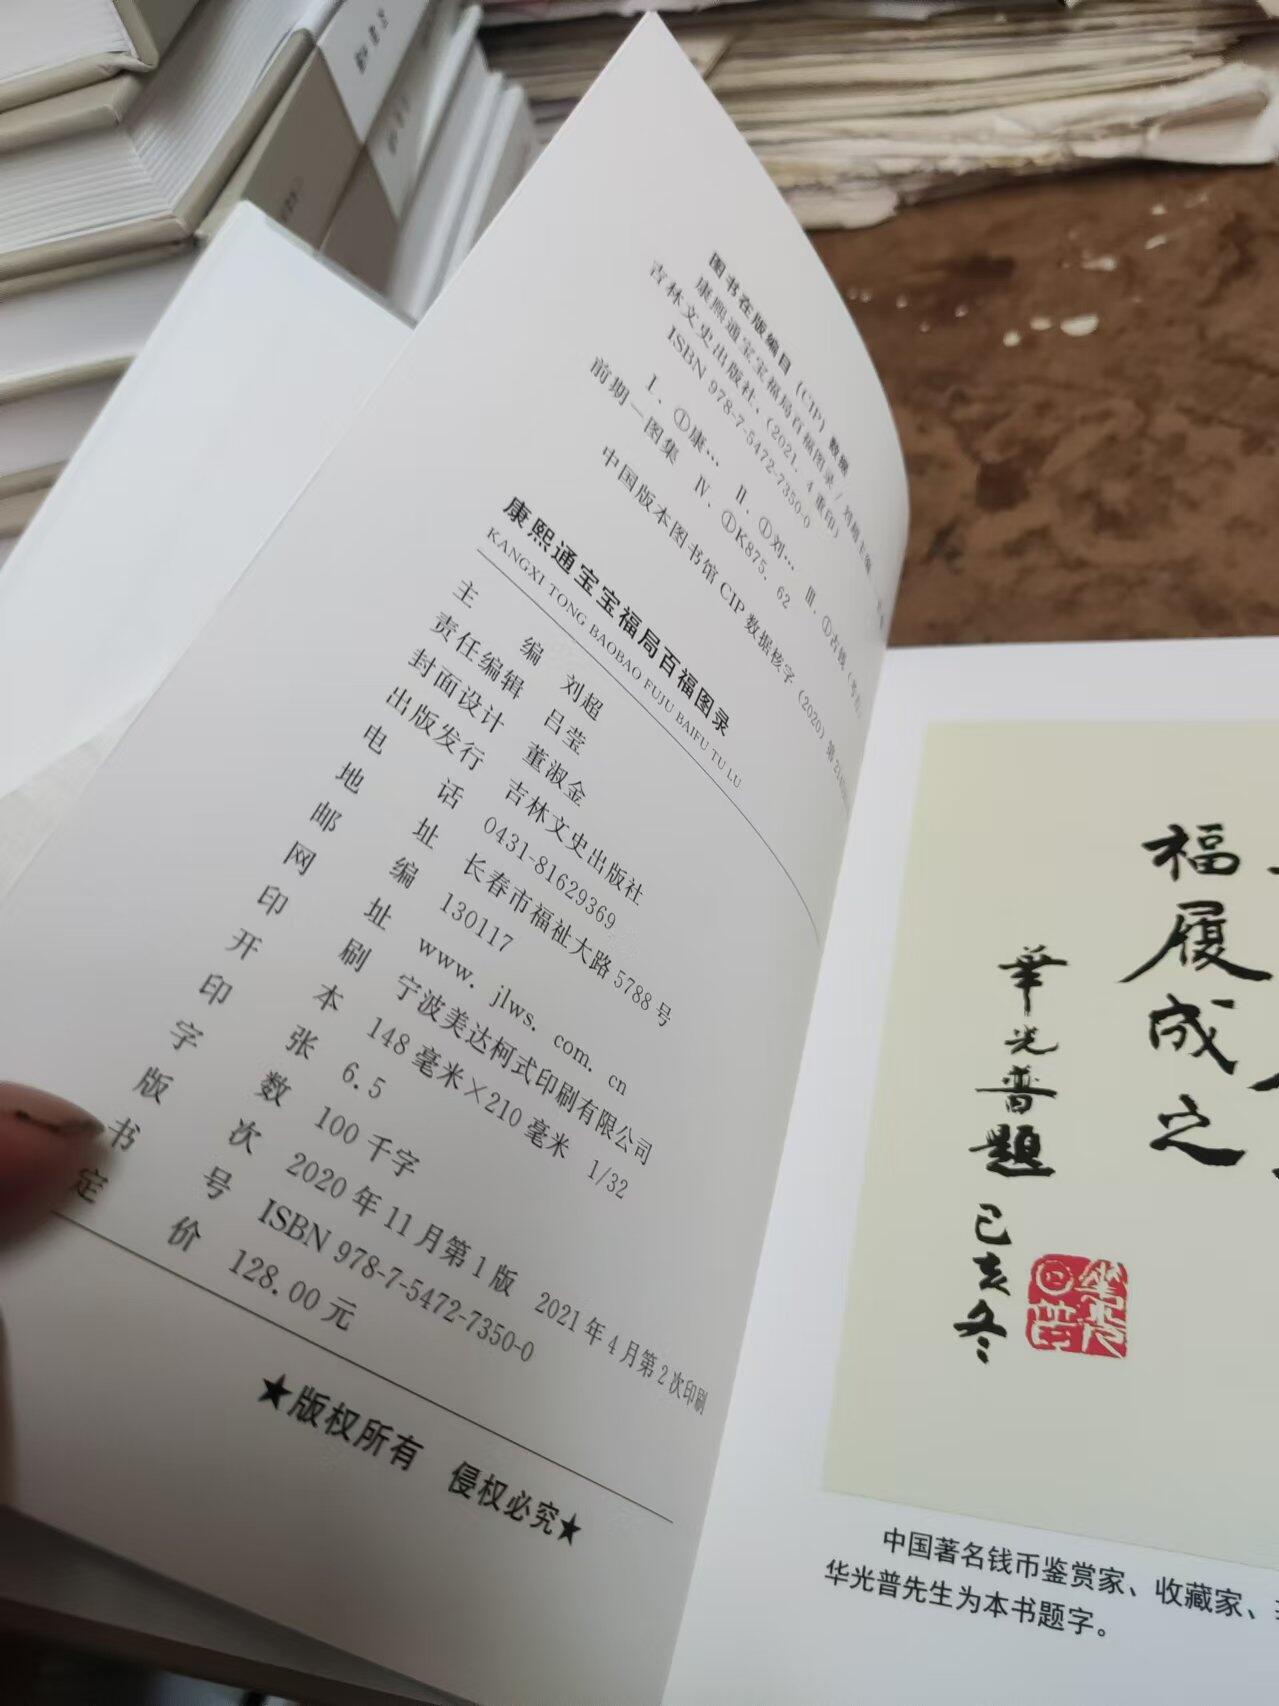 图书在版编目（CIP）数据
康熙通宝宝福局百福图录/刘超主编
吉林文史出版社，（2021.4重印）
ISBN 978-7-5472-7350-0
Ⅰ.①康… Ⅱ.①刘… Ⅲ.①古钱（考古）
前期－图集 Ⅳ.①K875.62
中国版本图书馆CIP数据核字（2020）第
康熙通宝宝福局百福图录
KANGXI TONG BAOBAO FUJU BAIFU TU LU
主编 刘超
责任编辑 吕莹
封面设计 董淑金
出版发行 吉林文史出版社
电话 0431-81629369
地址 长春市福祉大路5788号
邮编 130117
网址 www.jlws.com.cn
印刷 宁波美达柯式印刷有限公司
开本 148毫米×210毫米 1/32
印张 6.5
字数 100千字
版次 2020年11月第1版 2021年4月第2次印刷
书号 ISBN 978-7-5472-7350-0
定价 128.00元
★版权所有 侵权必究★
福履成之
華光普題
己亥冬
中国著名钱币鉴赏家、收藏家、
华光普先生为本书题字。